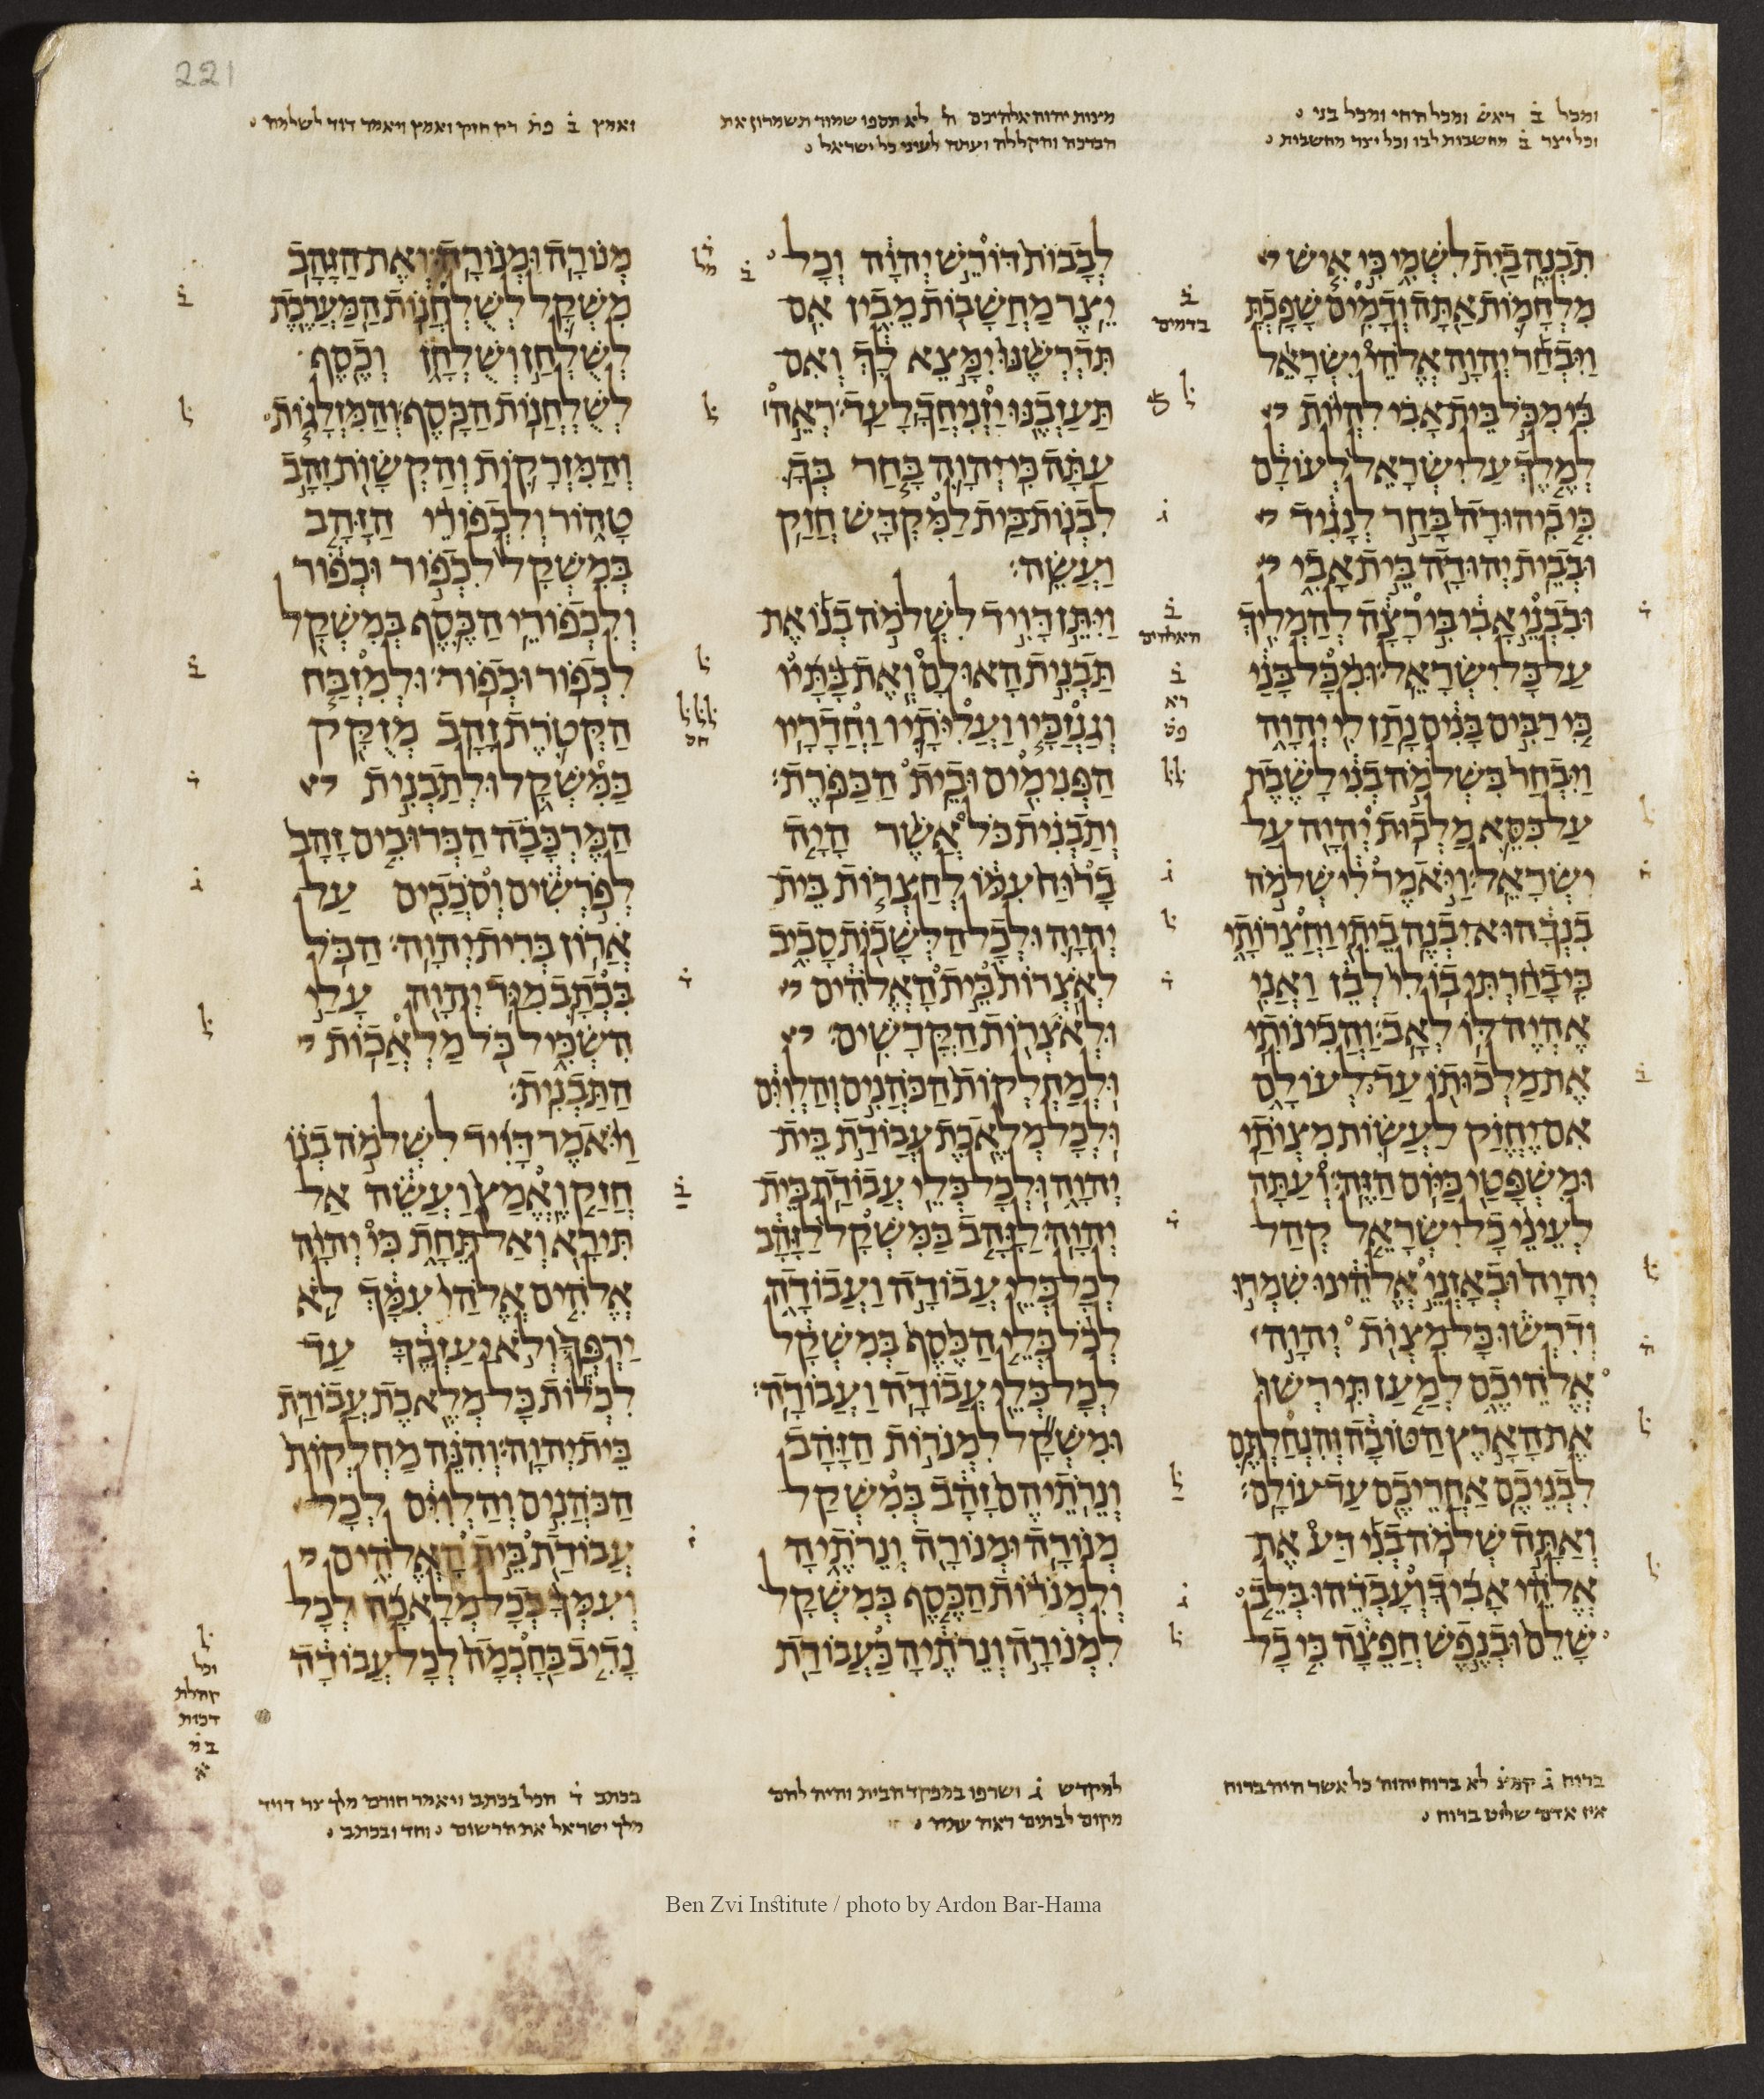 221
ומכל ב ראש ומכל החי ומכל בני
וכל יצר ב מחשבות לבו וכל יצר מחשבות
מצות יהוה אלהיכם ה לא תספו שמור תשמרון את
הברכה והקללה ועתה לעיני כל ישראל
ואמץ ב פת רק חזק ואמץ ויאמר דויד לשלמה
תבנה בית לשמי כי איש
מלחמות אתה ודמים שפכת
ויבחר יהוה אלהי ישראל
בי מכל בית אבי להיות
למלך על ישראל לעולם
כי ביהודה בחר לנגיד
ובבית יהודה בית אבי
ובבני אבי בי רצה להמליך
על כל ישראל ומכל בני
כי רבים בנים נתן לי יהוה
ויבחר בשלמה בני לשבת
על כסא מלכות יהוה על
ישראל ויאמר לי שלמה
בנך הוא יבנה ביתי וחצרותי
כי בחרתי בו לי לבן ואני
אהיה לו לאב והכינותי
את מלכותו עד לעולם
אם יחזק לעשות מצותי
ומשפטי כיום הזה ועתה
לעיני כל ישראל קהל
יהוה ובאזני אלהינו שמרו
ודרשו כל מצות יהוה
אלהיכם למען תירשו
את הארץ הטובה והנחלתם
לבניכם אחריכם עד עולם
ואתה שלמה בני דע את
אלהי אביך ועבדהו בלב
שלם ובנפש חפצה כי כל
לבבות דורש יהוה וכל
יצר מחשבות מבין אם
תדרשנו ימצא לך ואם
תעזבנו יזניחך לעד ראה
עתה כי יהוה בחר בך
לבנות בית למקדש חזק
ועשה
ויתן דויד לשלמה בנו את
תבנית האולם ואת בתיו
וגנזכיו ועליותיו וחדריו
הפנימים ובית הכפרת
ותבנית כל אשר היה
ברוח עמו לחצרות בית
יהוה ולכל הלשכות סביב
לאצרות בית האלהים
ולאצרות הקדשים
ולמחלקות הכהנים והלוים
ולכל מלאכת עבודת בית
יהוה ולכל כלי עבודת בית
יהוה לזהב במשקל לזהב
לכל כלי עבודה ועבודה
לכל כלי הכסף במשקל
לכל כלי עבודה ועבודה
ומשקל למנרות הזהב
ונרתיהם זהב במשקל
מנורה ומנורה ונרתיה
ולמנרות הכסף במשקל
למנורה ונרתיה כעבודת
מנורה ומנורה ואת הזהב
משקל לשלחנות המערכת
לשלחן ושלחן וכסף
לשלחנות הכסף והמזלגות
והמזרקות והקשות זהב
טהור ולכפורי הזהב
במשקל לכפור וכפור
ולכפורי הכסף במשקל
לכפור וכפור ולמזבח
הקטרת זהב מזקק
במשקל ולתבנית
המרכבה הכרובים זהב
לפרשים וסככים על
ארון ברית יהוה הכל
בכתב מיד יהוה עלי
השכיל כל מלאכות
התבנית
ויאמר דויד לשלמה בנו
חזק ואמץ ועשה אל
תירא ואל תחת כי יהוה
אלהים אלהי עמך לא
ירפך ולא יעזבך עד
לכלות כל מלאכת עבודת
בית יהוה והנה מחלקות
הכהנים והלוים לכל
עבודת בית האלהים
ועמך בכל מלאכה לכל
נדיב בחכמה לכל עבודה
ברוח ג קמצ לא ברוח יהוה כל אשר היה ברוח
אין אדם שליט ברוח
למקדש ג ושרפו במפקד הבית והיה להם
מקום לבתים ראה עתה
בכתב ד הכל בכתב ויאמר חורם מלך צר דויד
מלך ישראל את הרשום וחד ובכתב
Ben Zvi Institute / photo by Ardon Bar-Hama